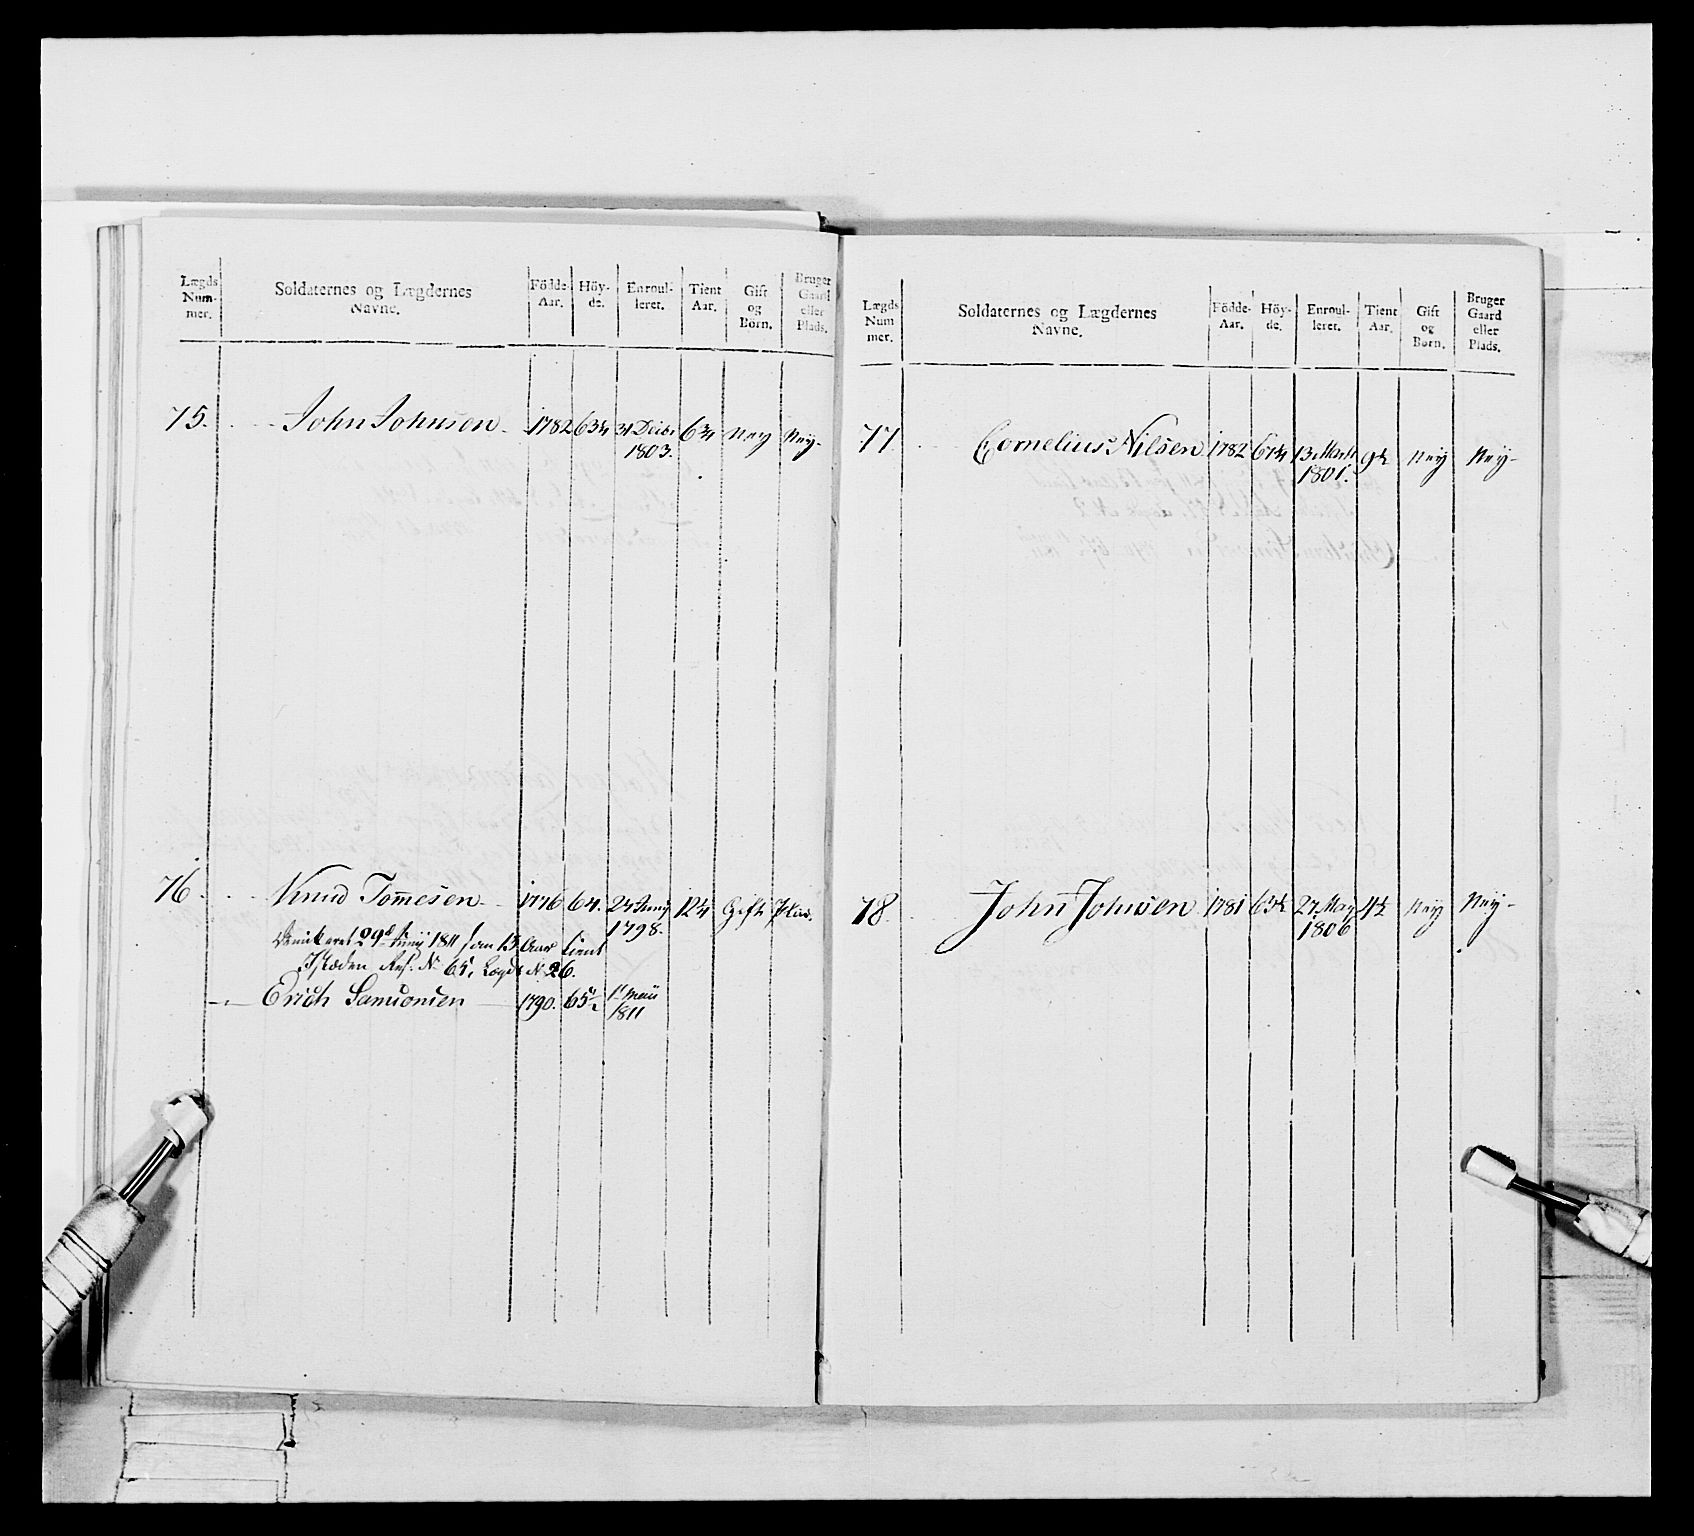 Lægds Num- mer. Soldaternes og Lægdernes Navne. Födde- Aar. Höy- de. Enroul- leret. Tient Aar. Gift og Börn. Bruger Gaard eller Plads.
75. John Johnsen 1782 63¾ 31 Decbr 1803. 6¾ Ney Ney.
76. Knud Tommesen 1776 64. 24 Juny 1798. 12¼ Gift Plas.
29de Juny 1811 som 13 Aar tient
Isteden Res. No 65, Lægd No 26.
Erich Samuonsen 1790. 65½ 1 Maii 1811
Lægds Num mer. Soldaternes og Lægdernes Navne. Födde- Aar. Höy- de. Enroul- leret. Tient Aar. Gift og Børn. Bruger Gaard eller Plads.
77 Cornelius Nilsen 1782 67¼ 13 Marti 1801. 9½ Ney Ney
78 John Johnsen 1781 63½ 27 May 1806 4½ Ney Ney